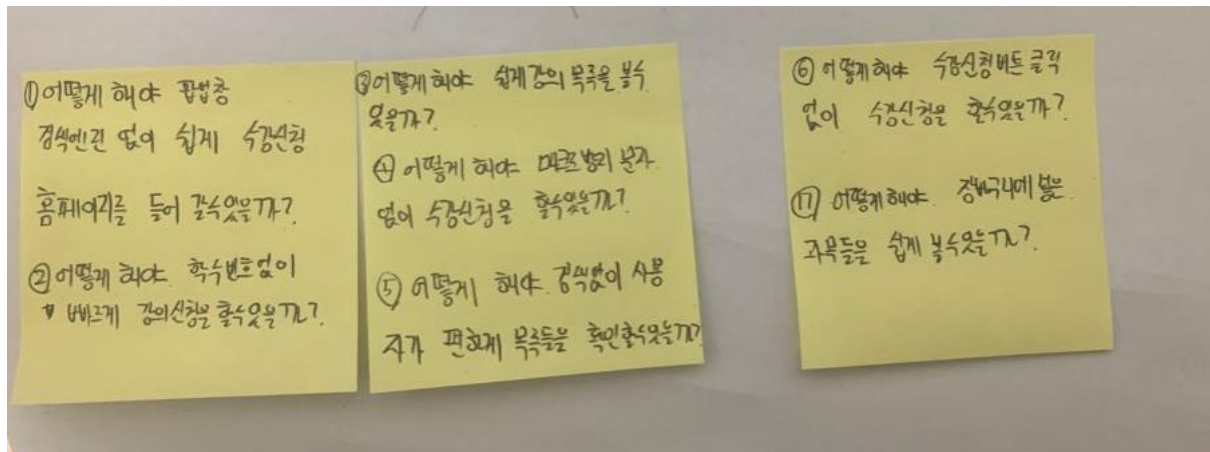 ① 어떻게 해야 팝업창
검색엔진 없이 쉽게 수강신청
홈페이지를 들어 갈수있을까?
② 어떻게 해야 학수번호없이
빠르게 강의신청을 할수있을까?
③ 어떻게 해야 쉽게 강의 목록을 볼수
있을까?
④ 어떻게 해야 매크로방지 문자
없이 수강신청을 할수있을까?
⑤ 어떻게 해야 검색없이 사용
자가 편하게 목록들을 확인할수있을까?
⑥ 어떻게해야 수강신청버튼 클릭
없이 수강신청을 할수있을까?
⑰ 어떻게해야 장바구니에 넣은
과목들은 쉽게 볼수있을까?